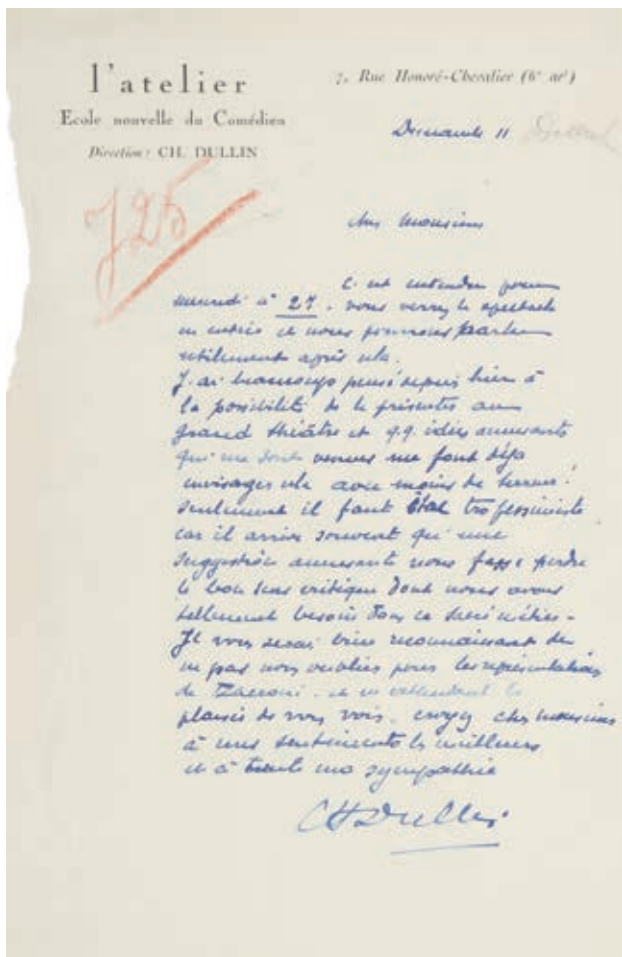 l'atelier
Ecole nouvelle du Comédien
Direction : CH. DULLIN
7, Rue Honoré-Chevalier (6e arr)
Dimanche 11 Dullin
725
cher Monsieur
C'est entendu pour
mercredi à 21. vous verrez le spectacle
en entier et nous pourrons parler
utilement après cela.
J'ai beaucoup pensé depuis hier à
la possibilité de le présenter au
grand théâtre et q.q. idées amusantes
qui me sont venues me font déjà
envisager cela avec moins de terreur !
seulement il faut être très pessimiste
car il arrive souvent qu'une
suggestion amusante nous fasse perdre
le bon sens critique dont nous avons
tellement besoin dans ce sacré métier -
Je vous serai bien reconnaissant de
ne pas nous oublier pour les représentations
de Zacconi. et en attendant le
plaisir de vous voir. croyez cher monsieur
à mes sentiments les meilleurs
et à toute ma sympathie
CH Dullin